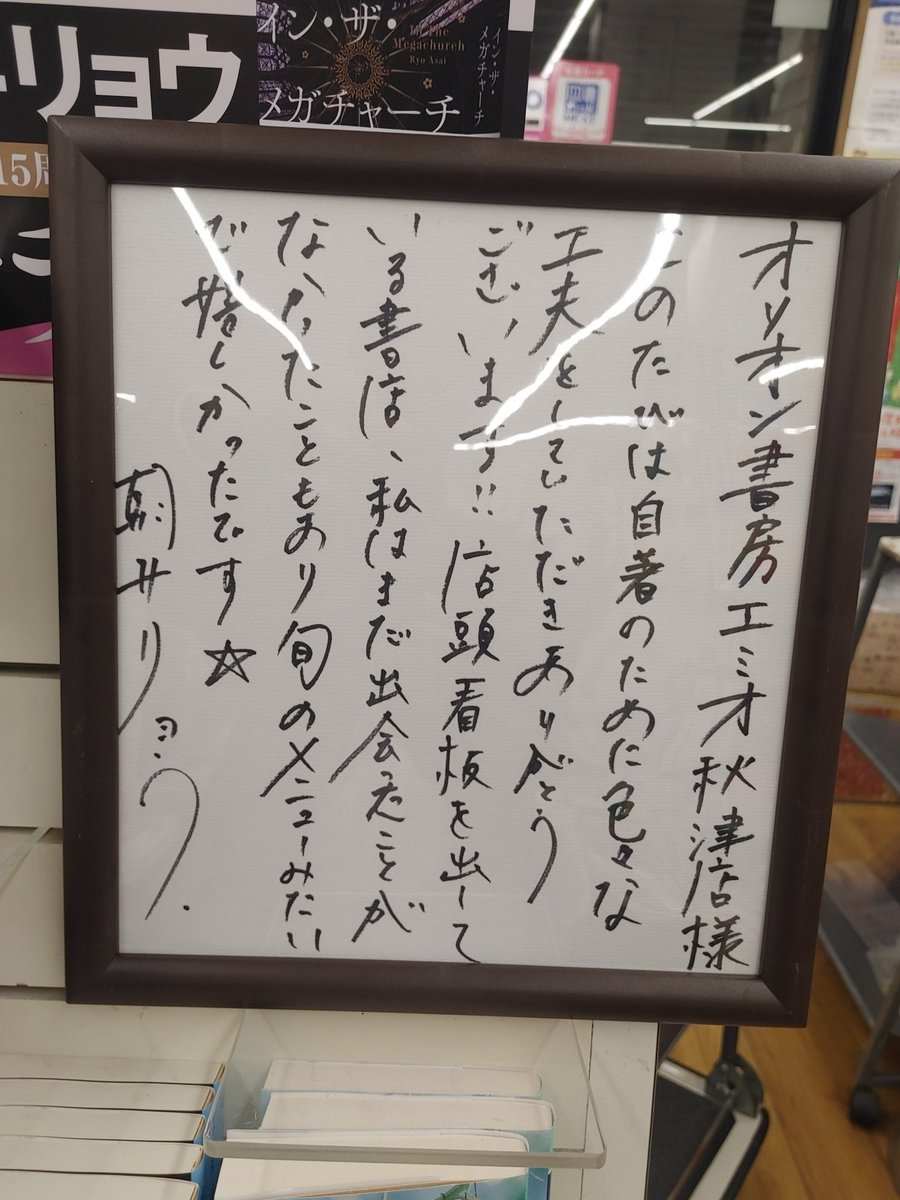 リョウ
イン・ザ・
メガチャーチ
In The
Megachurch
Ryo Asai
イン・ザ・
メガチャーチ
15周
オリオン書房エミオ秋津店様
このたびは自著のために色々な
工夫をしていただきありがとう
ございます!! 店頭看板を出して
いる書店、私はまだ出会ったことが
なかったこともあり旬のメニューみたい
で嬉しかったです☆
朝井リョウ.